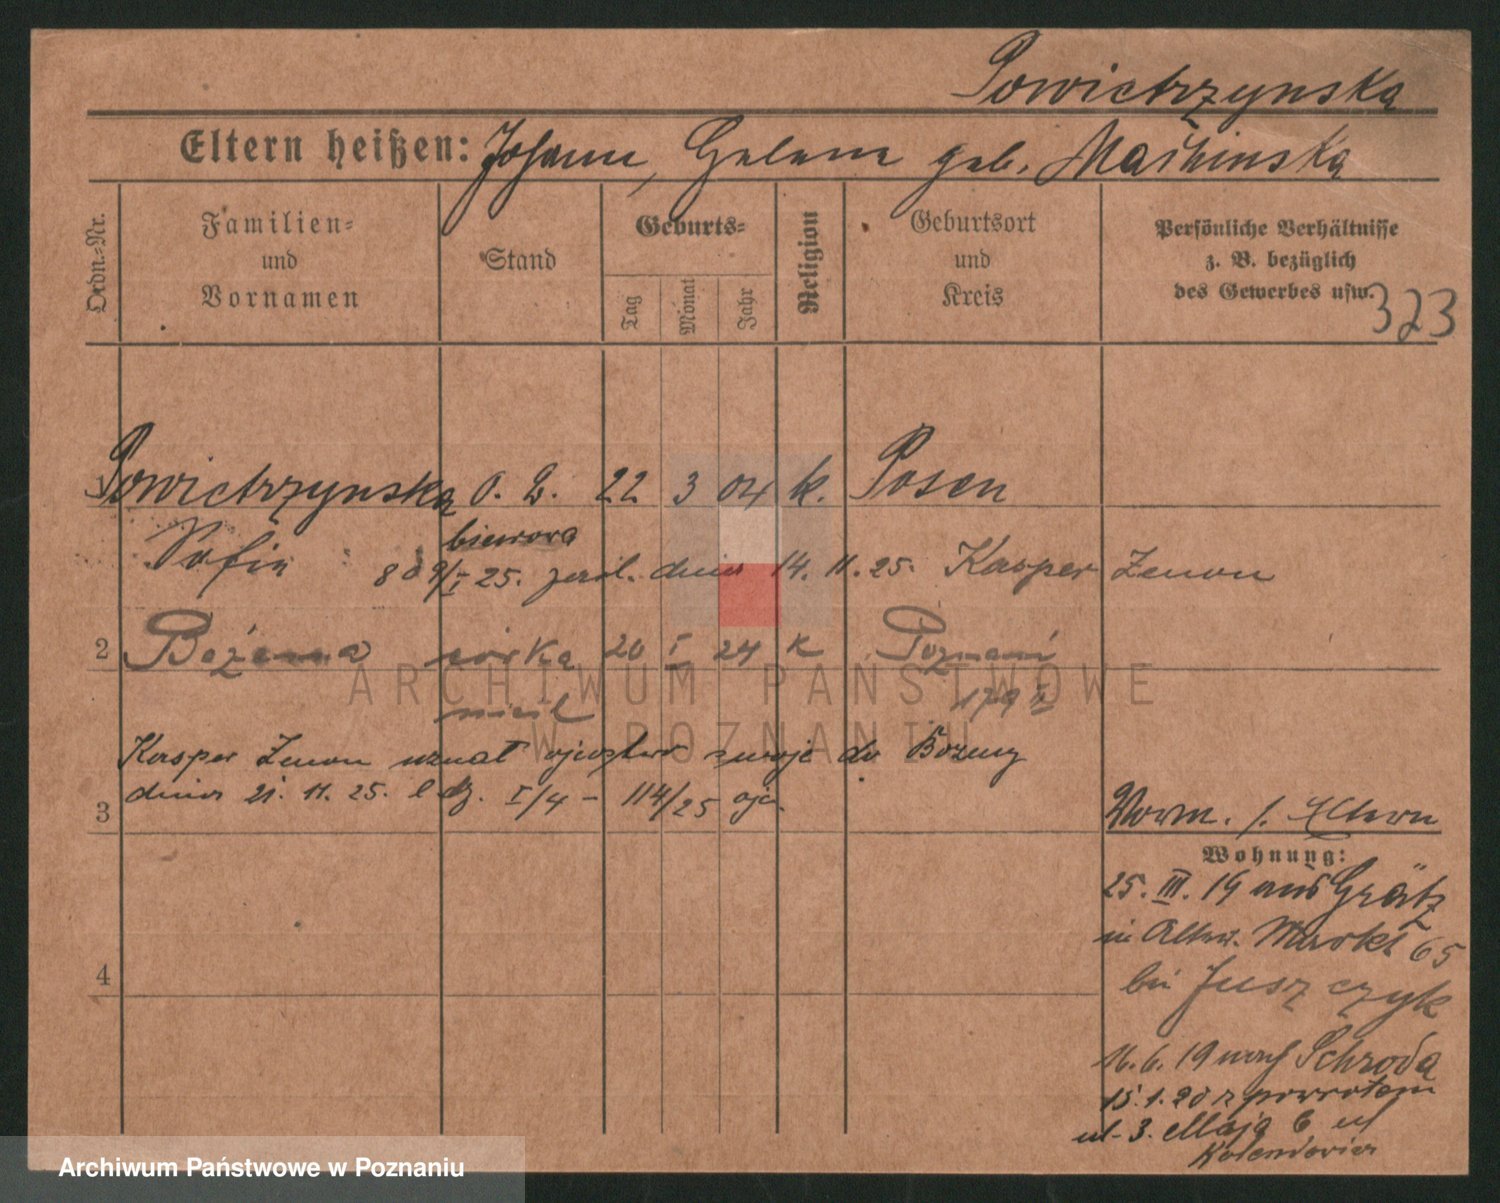 Powietrzynska
Eltern heißen: Johann, Helene geb. Machinska
Ordn.-Nr.
Familien-
und
Vornamen
Stand
Geburts-
Tag
Monat
Jahr
Religion
Geburtsort
und
Kreis
Persönliche Verhältnisse
z. B. bezüglich
des Gewerbes usw.
323
Powietrzynska 22 3 04 k. Posen
Sofie
biurowa
9/I 25. dnia 14. 11. 25. Kasper Zenon
2 Bożenna córka 20 I 24 k Poznań
179 II
Kasper Zenon uznał ojcostwo swoje do Bożeny
dnia 21. 11. 25. l dz. I/4 - 114/25
3
Vorm. s. Eltern
Wohnung:
25. III. 19 aus Grätz
in Alter Markt 65
bei Juszczyk
4
16. 6. 19 nach Schroda
15. 1. 20 z powrotem
ul. 3. Maja 6 u
ARCHIWUM PAŃSTWOWE
W POZNANIU
Archiwum Państwowe w Poznaniu